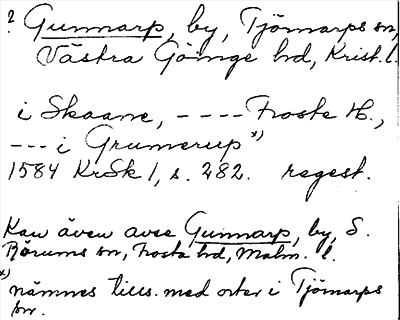 ? Gunnarp, by, Tjörnarps sn,
Västra Göinge hd, Krist. l.
i Skaane, - - - - Froste H.,
- - - i Grumerup *)
1584 KrSk 1, s. 282. regest.
Kan även avse Gunnarp, by, S.
Rörums sn, Frosta hd, Malm. l.
*) nämnes tills. med orter i Tjörnarps
sn.